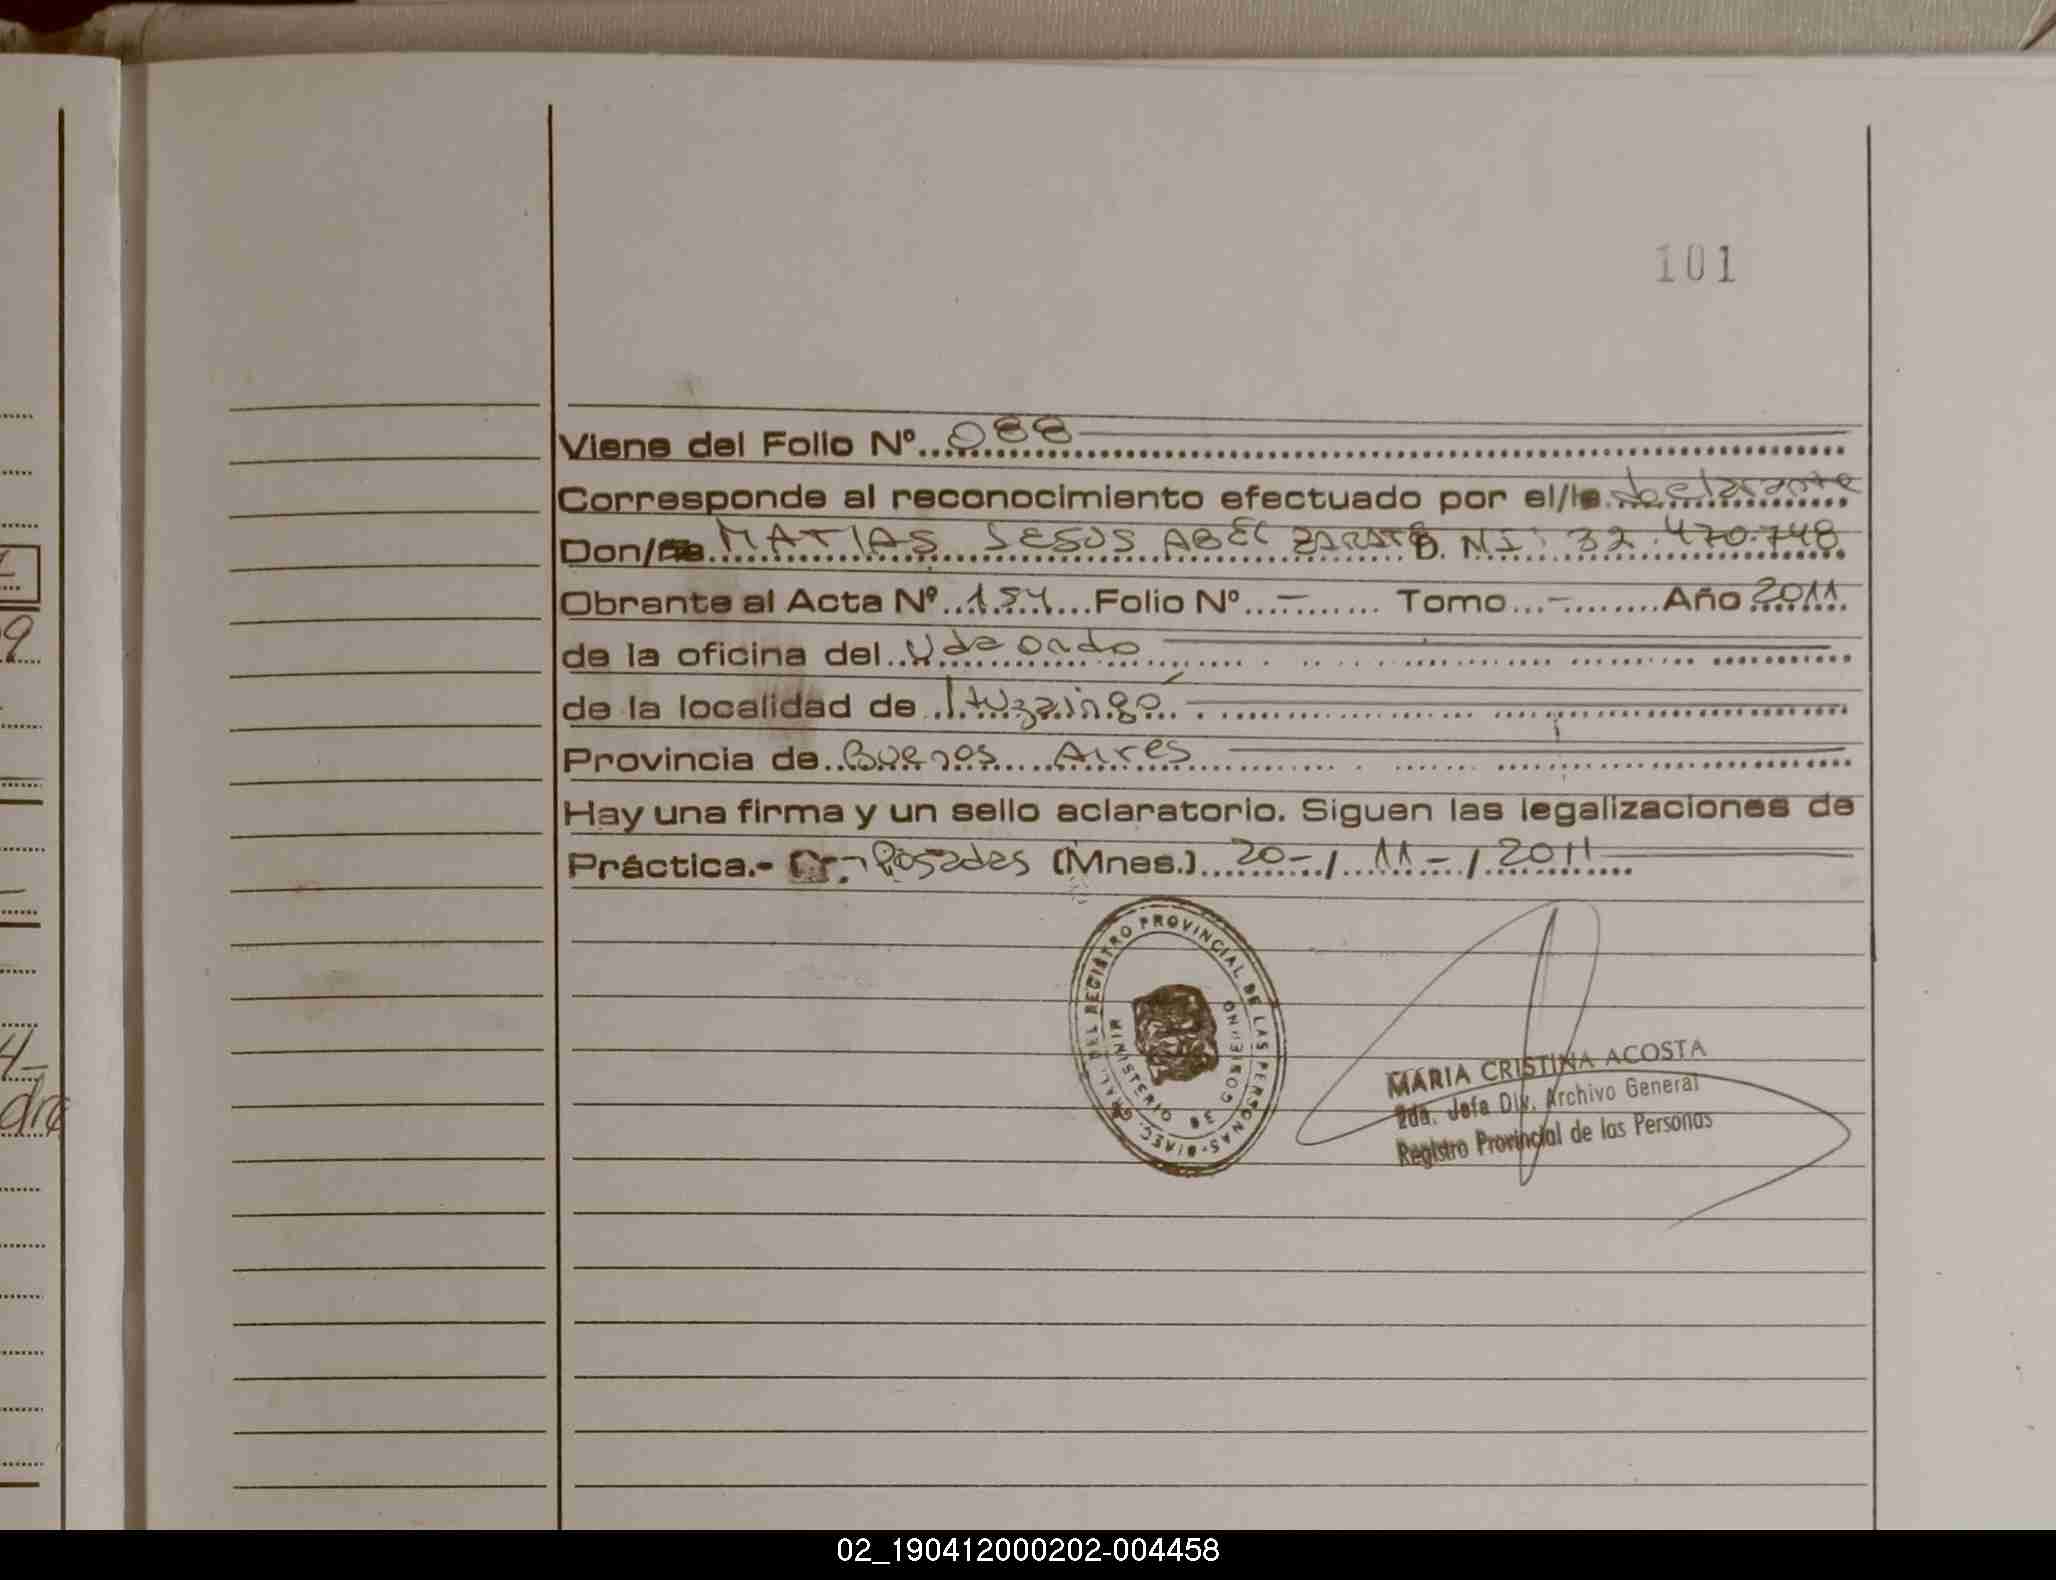 101
Viene del Folio Nº 088
Corresponde al reconocimiento efectuado por el/la declarante
Don/ña MATIAS JESUS ABEL ZARATE D. NI: 32.470.748
Obrante al Acta Nº Folio Nº - Tomo - Año 2011
de la oficina del Udaondo
de la localidad de Ituzaingó
Provincia de Buenos Aires
Hay una firma y un sello aclaratorio. Siguen las legalizaciones de
Práctica.- Posadas (Mnes.) 20-/ 11-/ 2011
DIREC. GRAL. DEL REGISTRO PROVINCIAL DE LAS PERSONAS
MINISTERIO DE GOBIERNO
MARIA CRISTINA ACOSTA
2da. Jefa Div. Archivo General
Registro Provincial de las Personas
02_190412000202-004458